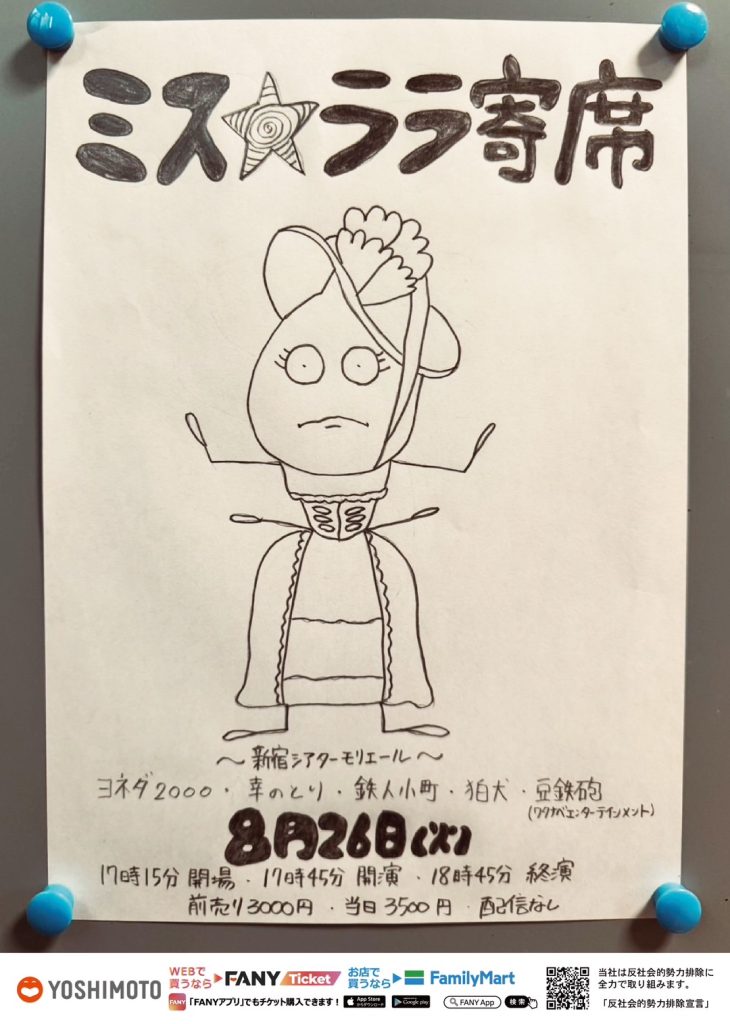 ミス☆ララ寄席
〜新宿シアターモリエール〜
ヨネダ2000・幸のとり・鉄人小町・狛犬・豆鉄砲
(ワタナベエンターテインメント)
8月26日(火)
17時15分 開場・17時45分 開演・18時45分 終演
前売り3000円・当日3500円・配信なし
YOSHIMOTO
WEBで買うなら FANY Ticket お店で買うなら FamilyMart
FANY 「FANYアプリ」でもチケット購入できます! App Store からダウンロード Google play FANY App 検索
当社は反社会的勢力排除に
全力で取り組みます。
「反社会的勢力排除宣言」